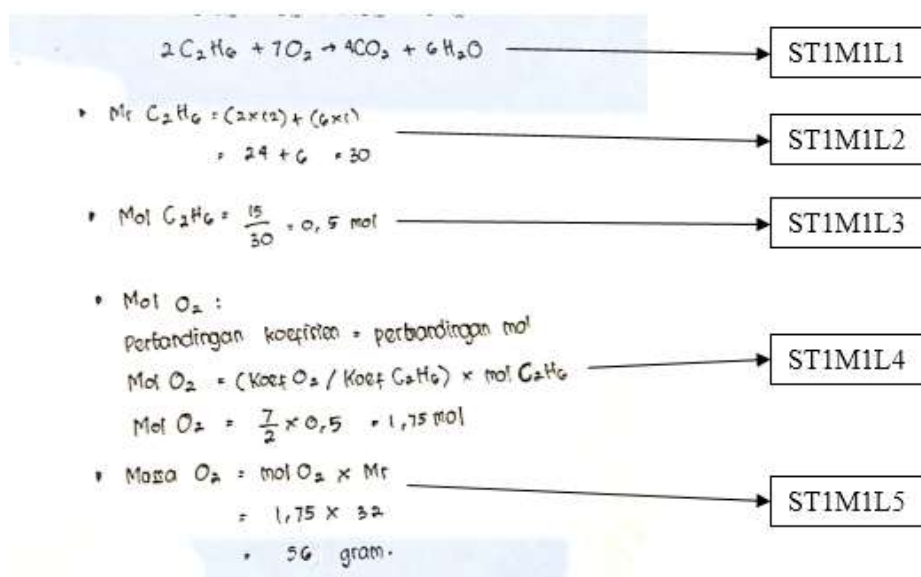 2C₂H₆ + 7O₂ → 4CO₂ + 6H₂O
ST1M1L1
• Mr C₂H₆ = (2×12) + (6×1)
= 24 + 6 = 30
ST1M1L2
• Mol C₂H₆ = 15/30 = 0,5 mol
ST1M1L3
• Mol O₂ :
Perbandingan koefisien = perbandingan mol
Mol O₂ = (Koef O₂ / Koef C₂H₆) × mol C₂H₆
ST1M1L4
Mol O₂ = 7/2 × 0,5 = 1,75 mol
• Massa O₂ = mol O₂ × Mr
ST1M1L5
= 1,75 × 32
= 56 gram.